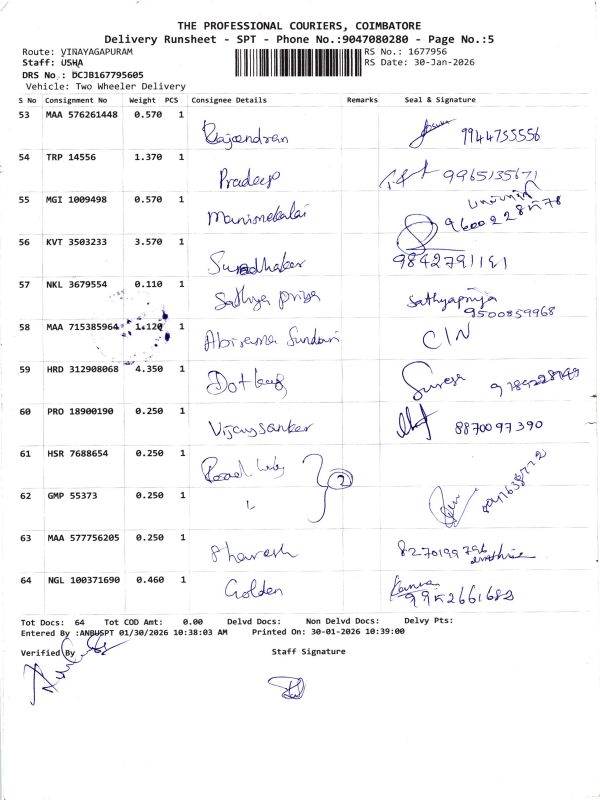 THE PROFESSIONAL COURIERS, COIMBATORE
Delivery Runsheet - SPT - Phone No.:9047080280 - Page No.:5
Route: VINAYAGAPURAM RS No.: 1677956
Staff: USHA RS Date: 30-Jan-2026
DRS No.: DCJB167795605
Vehicle: Two Wheeler Delivery
S No Consignment No Weight PCS Consignee Details Remarks Seal & Signature
53 MAA 576261448 0.570 1
Rajendran 9944755556
54 TRP 14556 1.370 1
Pradeep 9965135671
55 MGI 1009498 0.570 1
Manimekalai 9600228578
56 KVT 3503233 3.570 1
Sureshaker 9842791191
57 NKL 3679554 0.110 1
Sathya priya Sathyapriya
9500859968
58 MAA 715385964 1.120 1
Abirama Sundari C/N
59 HRD 312908068 4.350 1
Suresh
60 PRO 18900190 0.250 1
Vijaysanker 8870097390
61 HSR 7688654 0.250 1
2
62 GMP 55373 0.250 1
63 MAA 577756205 0.250 1
Bharath 8270199796
64 NGL 100371690 0.460 1
Golden 9952661682
Tot Docs: 64 Tot COD Amt: 0.00 Delvd Docs: Non Delvd Docs: Delvy Pts:
Entered By :ANBUSPT 01/30/2026 10:38:03 AM Printed On: 30-01-2026 10:39:00
Verified By Staff Signature